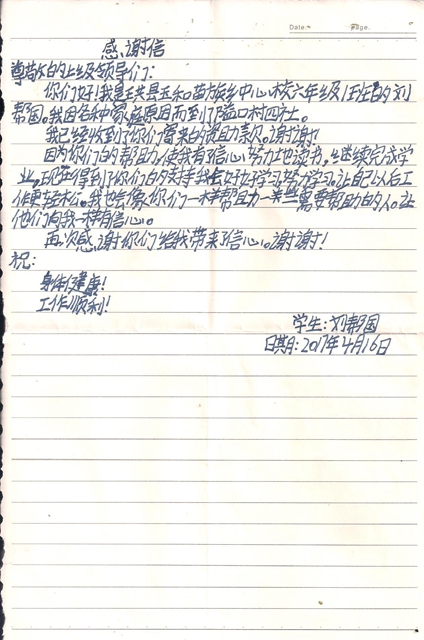 Date:   Page.
感谢信
尊敬的上级领导们:
你们好!我是珙县玉和苗族乡中心校六年级1班的刘
帮国。我因各种家庭原因而到了隘口村四社。
我已经收到了你们寄来的资助款了。谢谢!
因为你们的帮助,使我有信心努力地读书,继续完成学
业。现在得到了你们的支持我会好好学习努力学习。让自己以后工
作更轻松。我也会像你们一样帮助一些需要帮助的人。让
他们向我一样有信心。
再次感谢你们给我带来了信心。谢谢!
祝:
身体健康!
工作顺利!
学生:刘帮国
日期:2017年4月16日